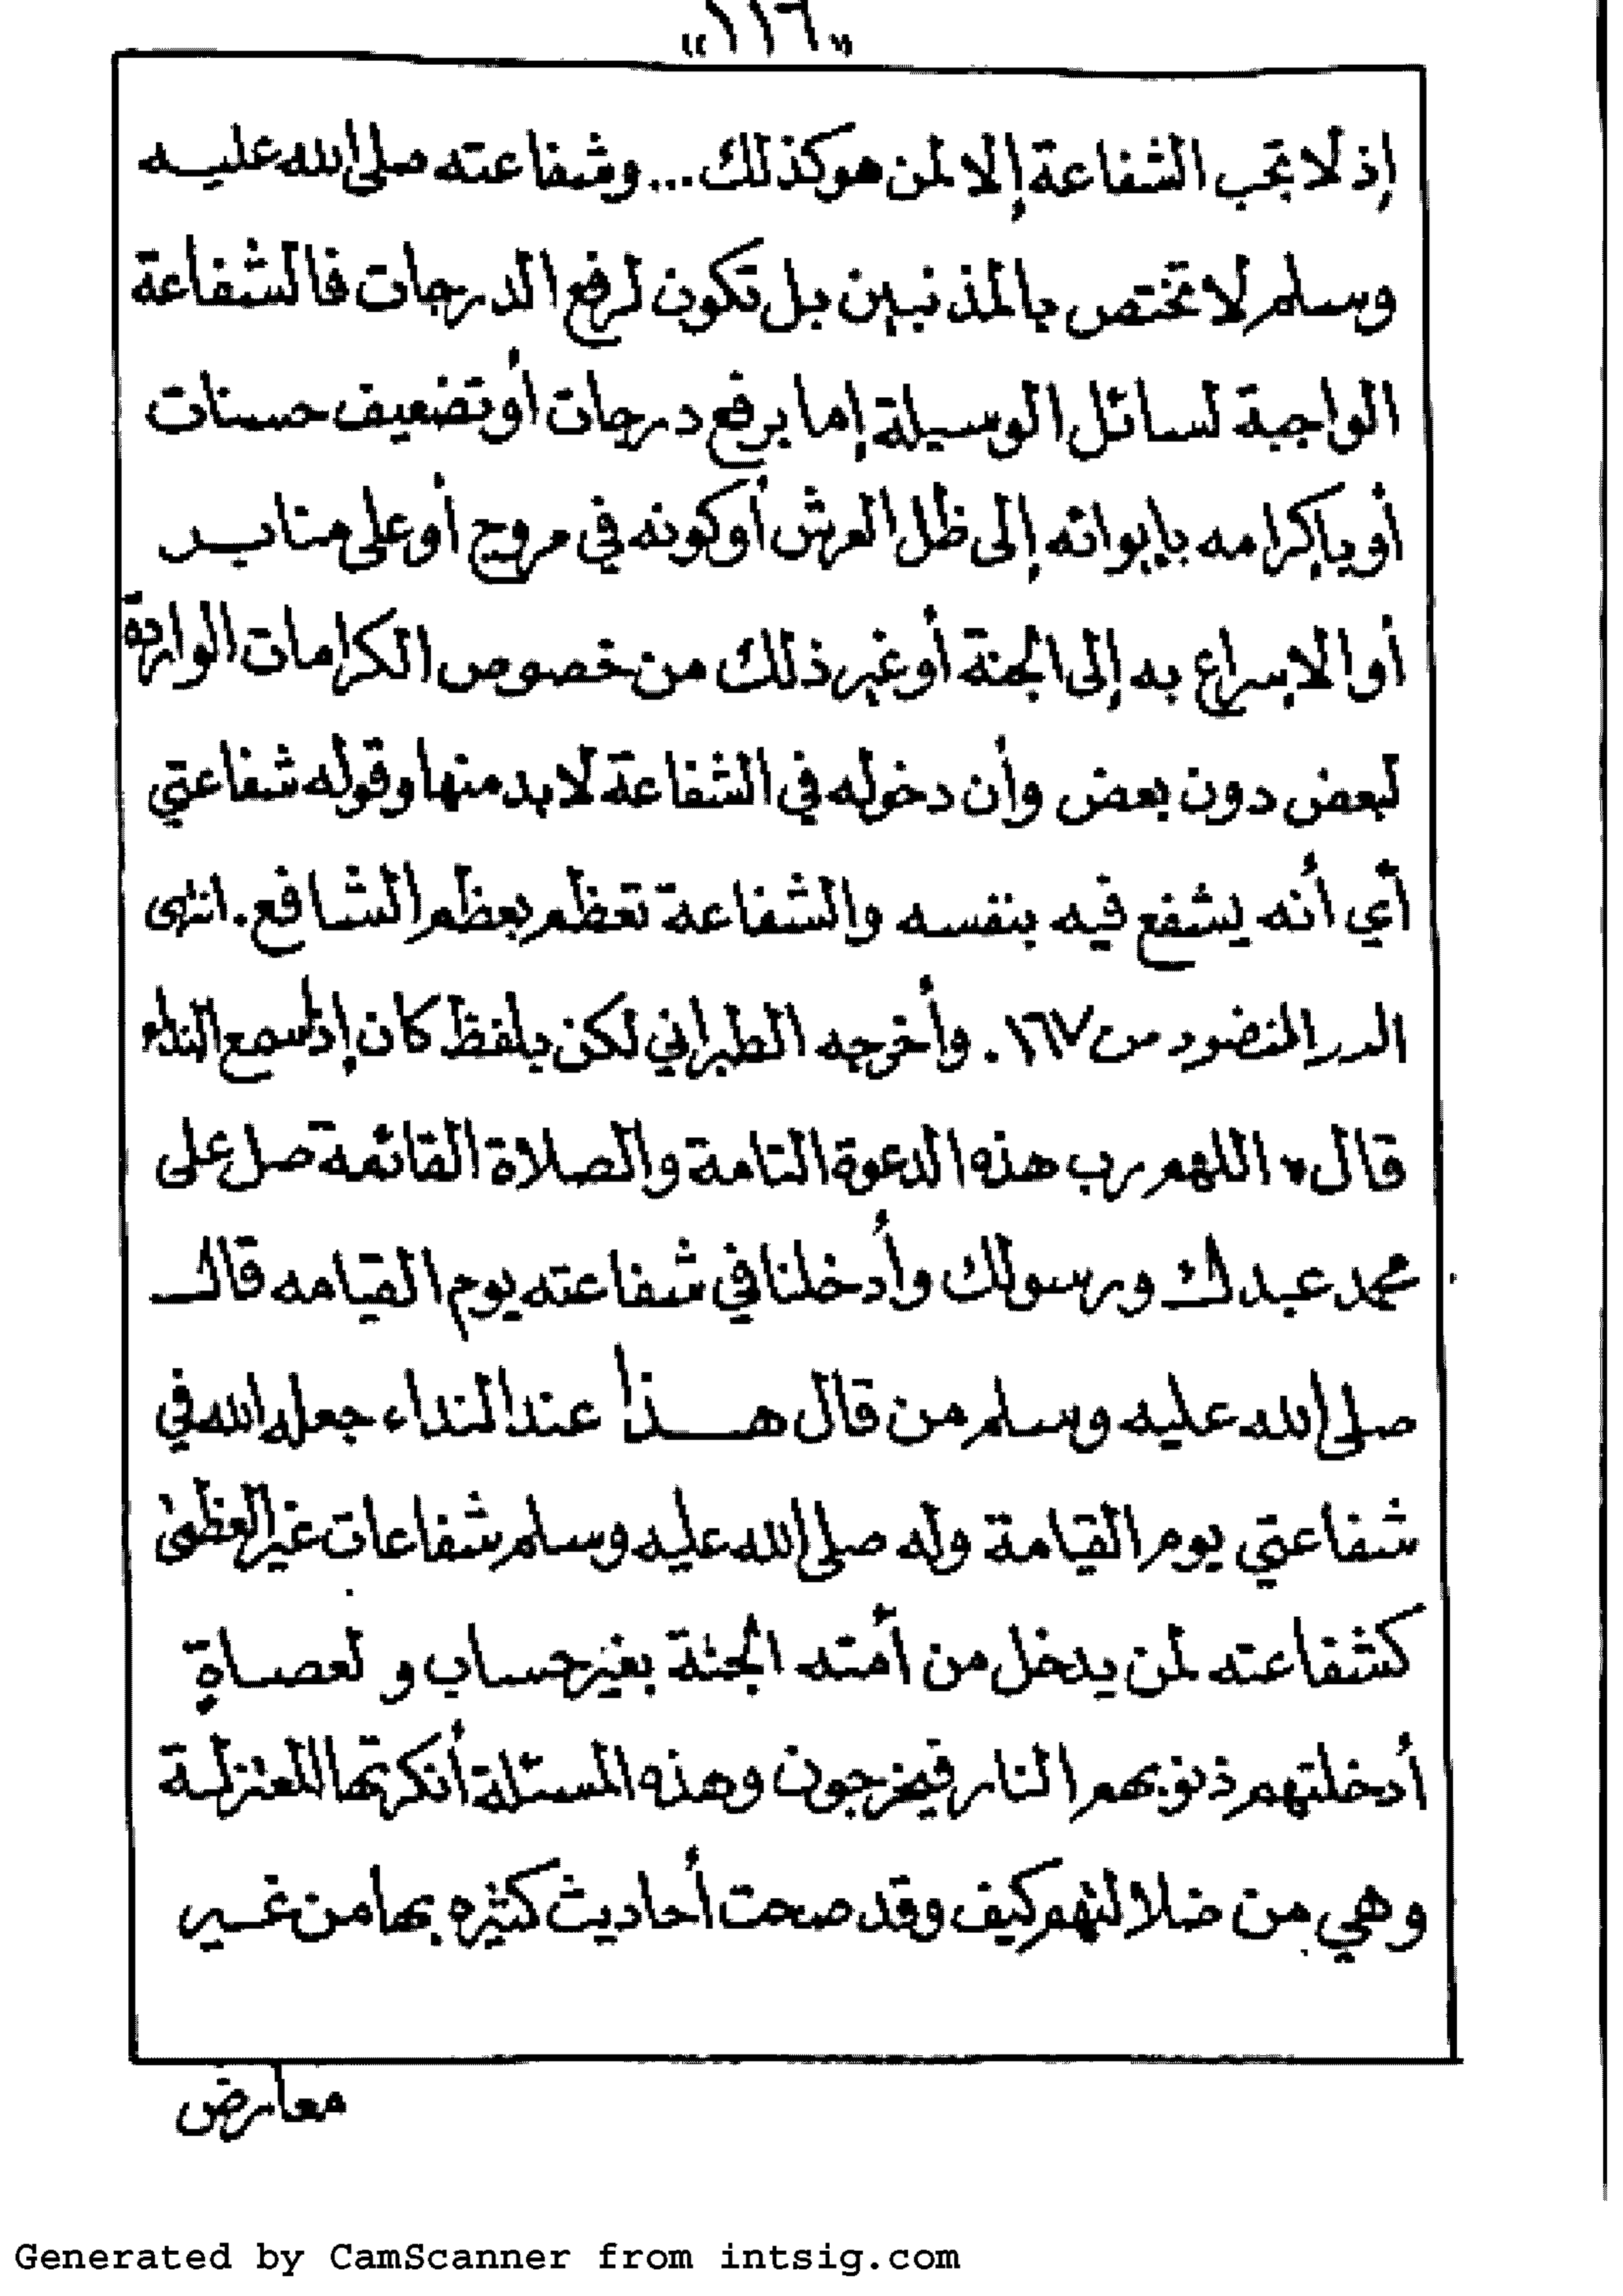 «١١٦»
إذ لا تجب الشفاعة إلا لمن هو كذلك ... وشفاعته صلى الله عليـه
وسلم لا تختص بالمذنبين بل تكون لرفع الدرجات فالشفاعة
الواجبة لسائل الوسيلة إما برفع درجات أو تضعيف حسنات
أو بإكرامه بإيوائه إلى ظل العرش أو كونه في مروج أو على منابـر
أو الإسراع به إلى الجنة أو غير ذلك من خصوص الكرامات الواردة
لبعض دون بعض وأن دخوله في الشفاعة لا بد منها وقوله شفاعتي
أي أنه يشفع فيه بنفسه والشفاعة تعظم بعظم الشافع . انتهى
الدر المنضود ص ١٦٧ . وأخرجه الطبراني لكن بلفظ كان إذا سمع النداء
قال « اللهم رب هذه الدعوة التامة والصلاة القائمة صل على
محمد عبدك ورسولك وأدخلنا في شفاعته يوم القيامه قالـ
صلى الله عليه وسلم من قال هـــذا عند النداء جعله الله في
شفاعتي يوم القيامة وله صلى الله عليه وسلم شفاعات غير العظمى
كشفاعته لمن يدخل من أمته الجنة بغير حساب و لعصـاةٍ
أدخلتهم ذنوبهم النار فيخرجون وهذه المسئلة أنكرتها المعتزلـة
وهي من ضلالتهم كيف وقد صحت أحاديث كثيره بها من غـير
معارض
Generated by CamScanner from intsig.com